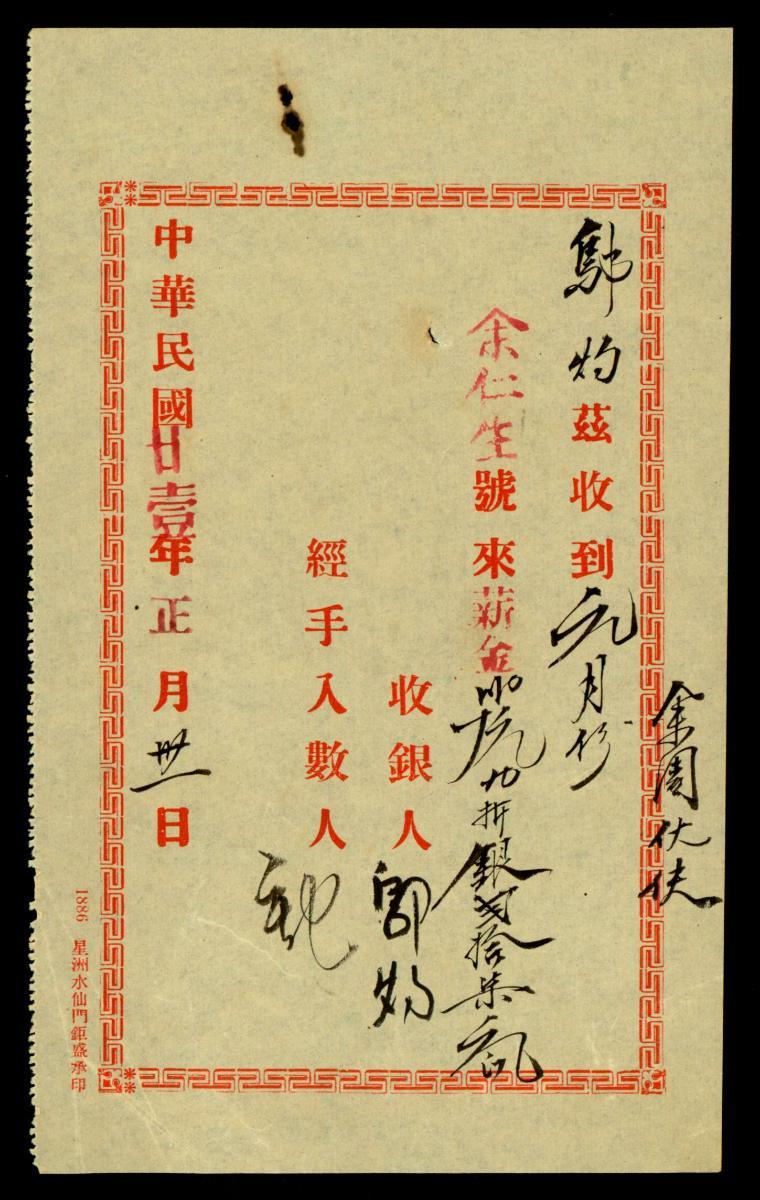 余園伙伕
鄔灼茲收到元月份
余仁生號來薪金〣〇元九折銀弍拾柒元
收銀人鄔灼
經手入數人
中華民國廿壹年正月卅一日
1886 星洲水仙門鉅盛承印